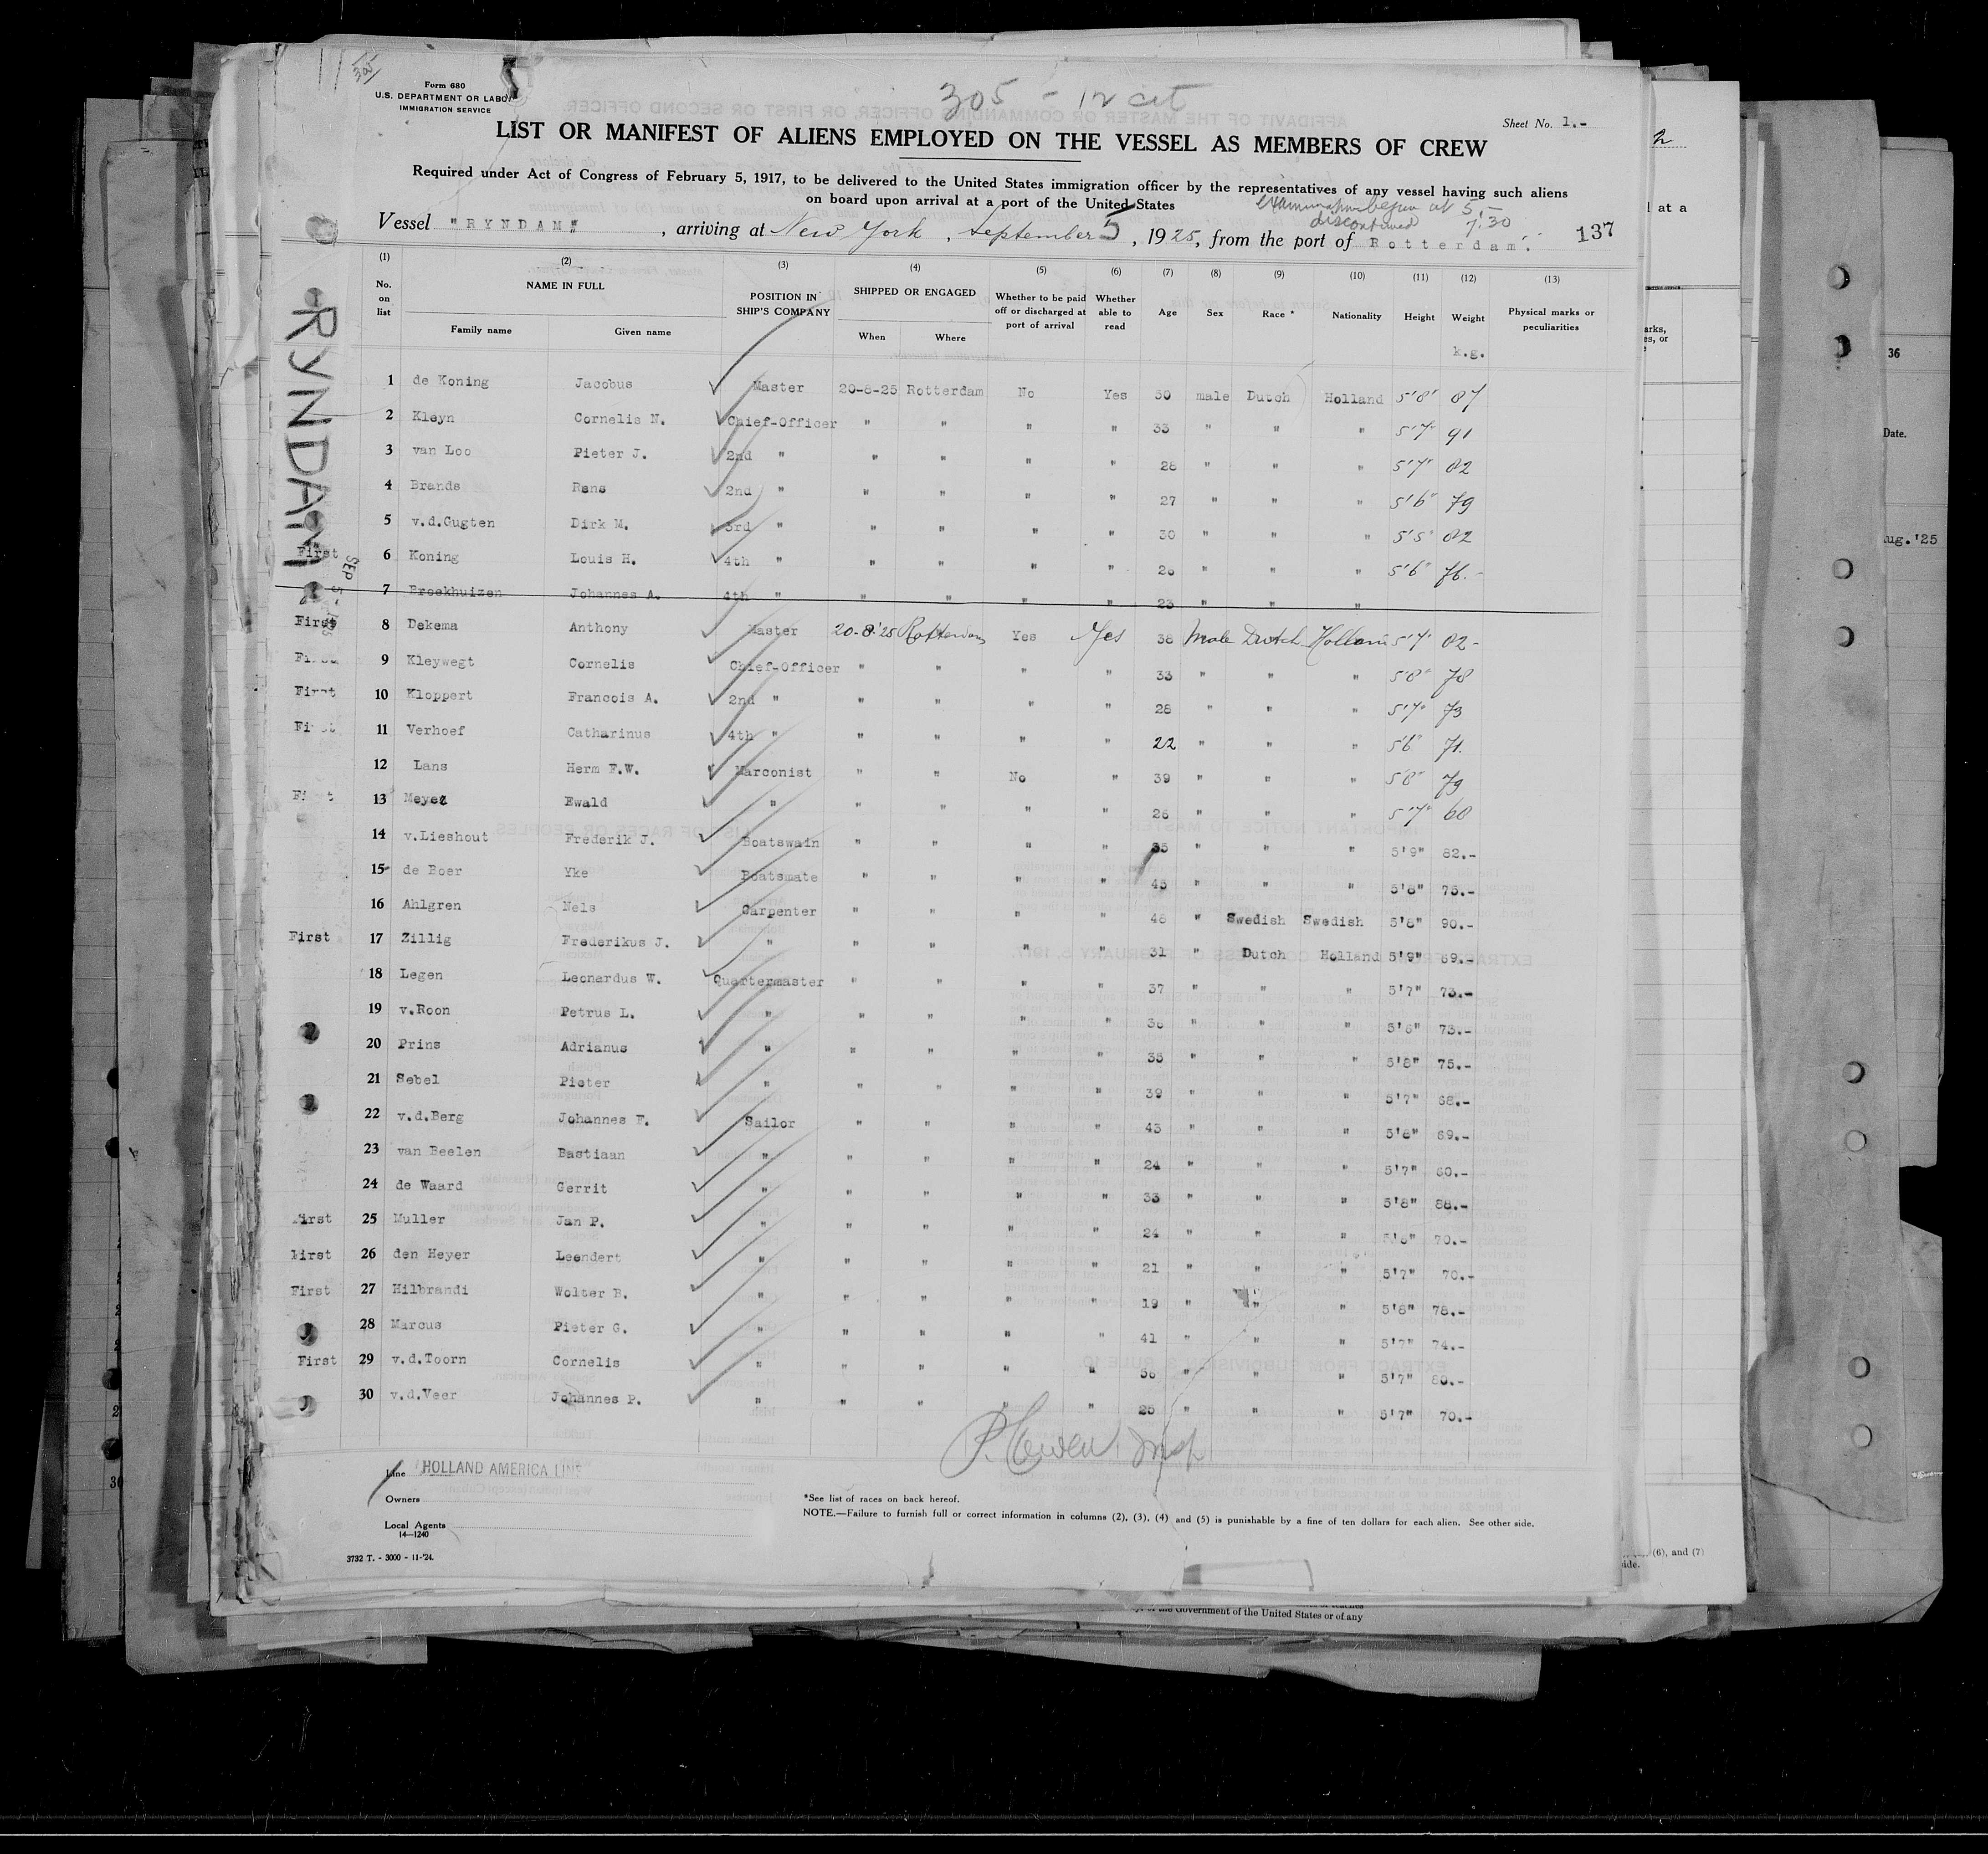 305
Form 680
U.S. DEPARTMENT OR LABOR
IMMIGRATION SERVICE
305 - 12 cit
Sheet No. 1.-
LIST OR MANIFEST OF ALIENS EMPLOYED ON THE VESSEL AS MEMBERS OF CREW
Required under Act of Congress of February 5, 1917, to be delivered to the United States immigration officer by the representatives of any vessel having such aliens
on board upon arrival at a port of the United States
Examination begun at 5.-
discontinued 7.30
Vessel "RYNDAM", arriving at New York, September 5, 1925, from the port of Rotterdam. 137
(1) (2) (3) (4) (5) (6) (7) (8) (9) (10) (11) (12) (13)
No. on list NAME IN FULL Family name Given name POSITION IN SHIP'S COMPANY SHIPPED OR ENGAGED When Where Whether to be paid off or discharged at port of arrival Whether able to read Age Sex Race * Nationality Height Weight Physical marks or peculiarities
k.g.
RYNDAM
1 de Koning Jacobus Master 20-8-25 Rotterdam No Yes 50 male Dutch Holland 5'8" 87
2 Kleyn Cornelis N. Chief-Officer " " " " 33 " " " 5'7" 91
3 van Loo Pieter J. 2nd " " " " " 28 " " " 5'7" 82
4 Brands Rens 2nd " " " " " 27 " " " 5'6" 79
5 v.d.Gugten Dirk M. 3rd " " " " " 30 " " " 5'5" 82
First 6 Koning Louis H. 4th " " " " " 26 " " " 5'6" 76.-
SEP 5 -
7 Broekhuizen Johannes A. 4th " " " " " 23 " " "
First 8 Dekema Anthony Master 20-8-'25 Rotterdam Yes Yes 38 Male Dutch Holland 5'7" 82-
First 9 Kleywegt Cornelis Chief-Officer " " " " 33 " " " 5'8" 78
First 10 Kloppert Francois A. 2nd " " " " " 28 " " " 5'7" 73
First 11 Verhoef Catharinus 4th " " " " " 22 " " " 5'6" 71.
12 Lans Herm F.W. Marconist " " No " 39 " " " 5'8" 79
First 13 Meyer Ewald " " " " " 26 " " " 5'7" 68
14 v.Lieshout Frederik J. Boatswain " " " " 35 " " " 5'9" 82.-
15 de Boer Yke Boatsmate " " " " 45 " " " 5'8" 75.-
16 Ahlgren Nels Carpenter " " " " 48 " Swedish Swedish 5'8" 90.-
First 17 Zillig Frederikus J. " " " " " 31 " Dutch Holland 5'9" 69.-
18 Legen Leonardus W. Quartermaster " " " " 37 " " " 5'7" 73.-
19 v.Roon Petrus L. " " " " " 36 " " " 5'6" 73.-
20 Prins Adrianus " " " " " 35 " " " 5'8" 75.-
21 Sebel Pieter " " " " " 39 " " " 5'7" 68.-
22 v.d.Berg Johannes F. Sailor " " " " 43 " " " 5'8" 69.-
23 van Beelen Bastiaan " " " " " 24 " " " 5'7" 60.-
24 de Waard Gerrit " " " " " 33 " " " 5'8" 88.-
First 25 Muller Jan P. " " " " " 24 " " " 5'6" 70.-
First 26 den Heyer Leendert " " " " " 21 " " " 5'7" 70.-
First 27 Hilbrandi Wolter B. " " " " " 19 " " " 5'8" 78.-
28 Marcus Pieter G. " " " " " 41 " " " 5'7" 74.-
First 29 v.d.Toorn Cornelis " " " " " 36 " " " 5'7" 80.-
30 v.d.Veer Johannes P. " " " " " 25 " " " 5'7" 70.-
Line HOLLAND AMERICA LINE
Owners
Local Agents
14-1240
3732 T. - 3000 - 11-'24.
*See list of races on back hereof.
NOTE.—Failure to furnish full or correct information in columns (2), (3), (4) and (5) is punishable by a fine of ten dollars for each alien. See other side.
2
at a
36
Date.
Aug.'25
(6), and (7)
of the Government of the United States or of any